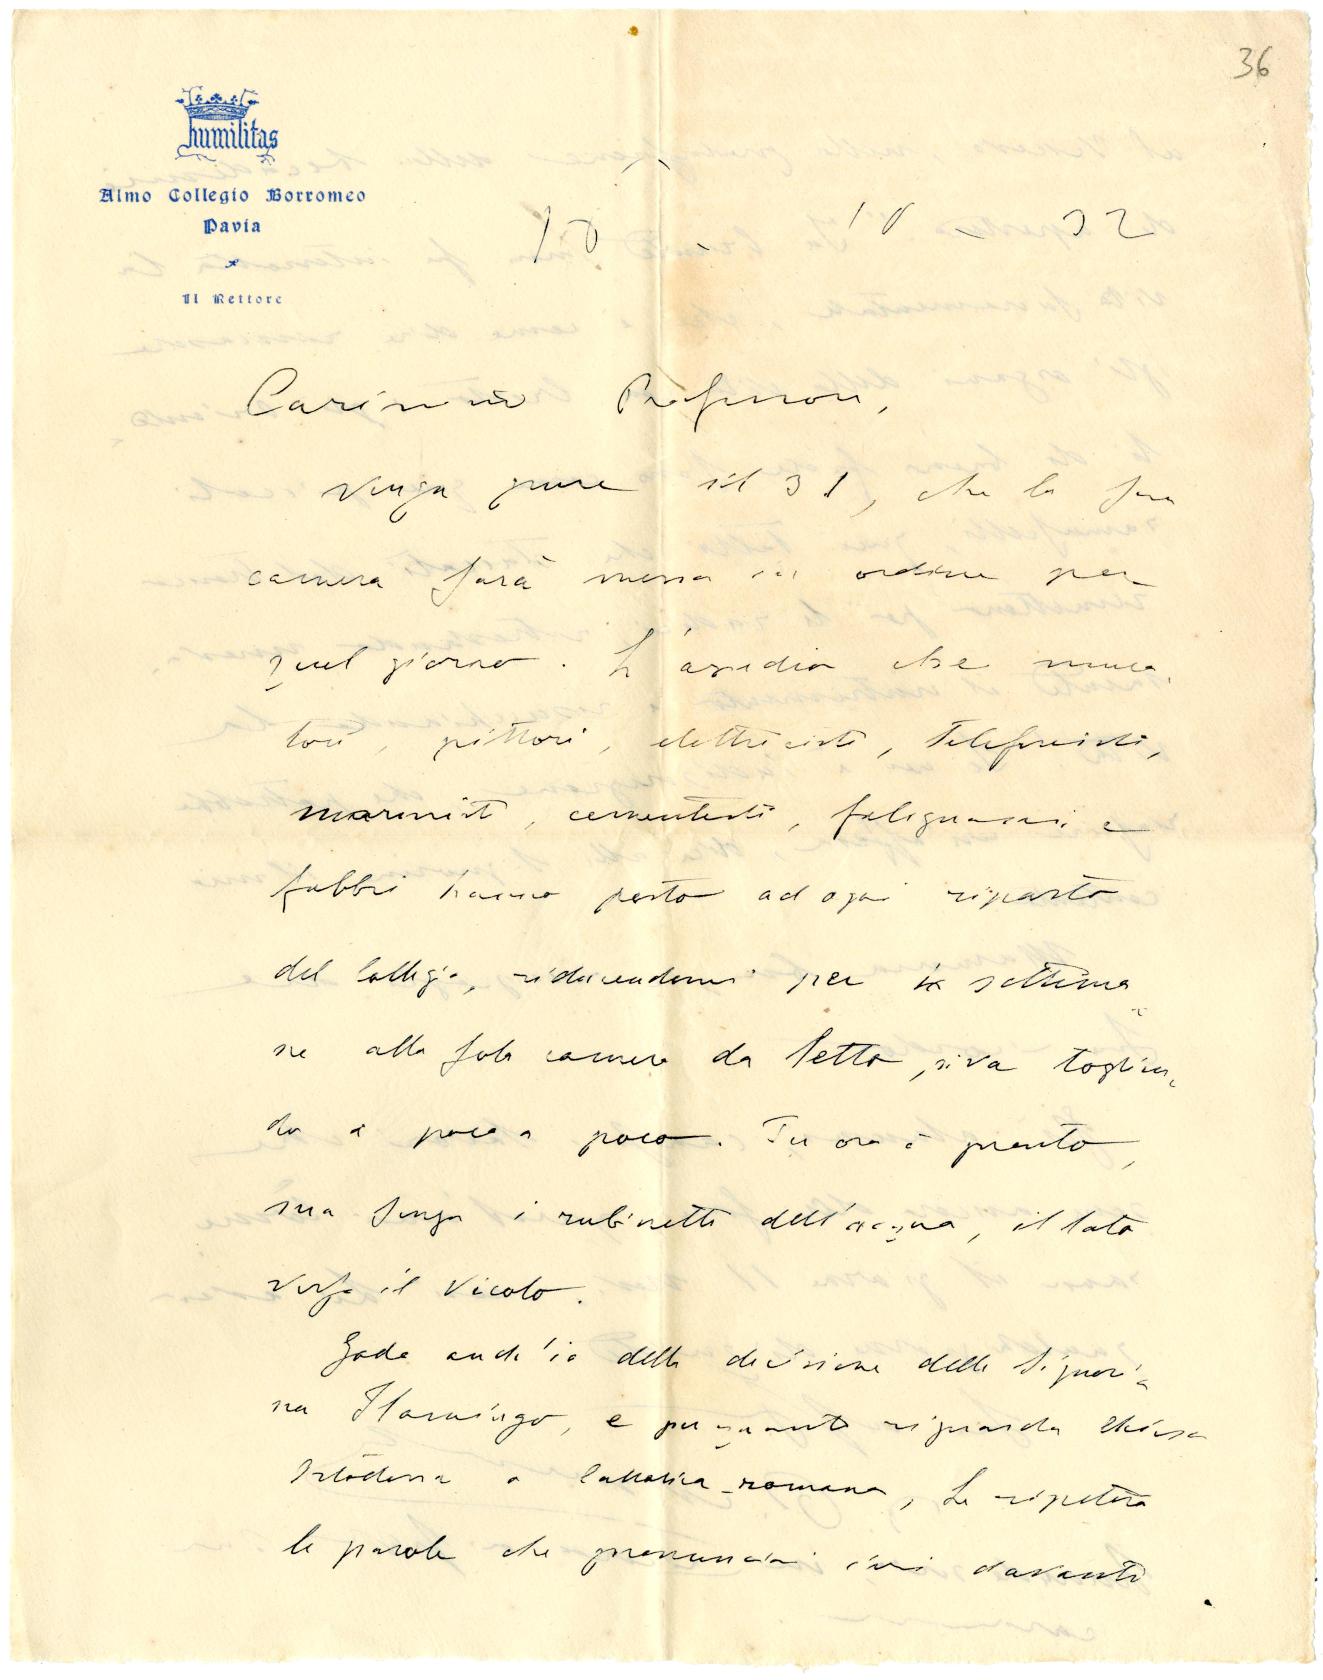 36
humilitas
Almo Collegio Borromeo
Pavia
Il Rettore
18 - 10 - 32
Carissimo Professore,
venga pure il 31, che la sua
camera sarà messa in ordine per
quel giorno. L'assedio che mura-
tori, pittori, elettricisti, telefonisti,
marmisti, cementisti, falegnami e
fabbri hanno posto ad ogni riparto
del Collegio, riducendomi per ix settima-
ne alla sola camera da letto, si va toglien-
do a poco a poco. Per ora è pronto,
ma senza i rubinetti dell'acqua, il lato
verso il vicolo.
Godo anch'io della decisione della Signori-
na Flamingo, e per quanto riguarda chiesa
ortodossa o cattolica-romana, Le ripeterò
le parole che pronunciai ivi davanti